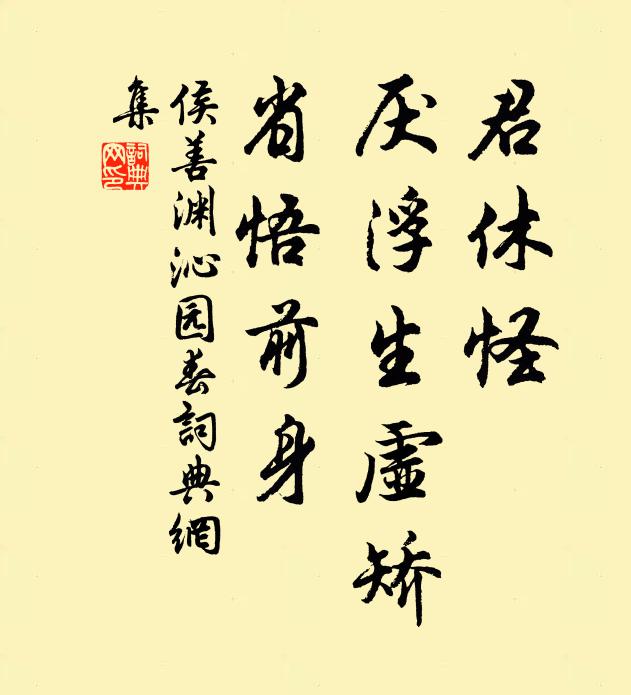 君休怪
厌浮生虚矫
省悟前身
侯善渊沁园春詞典網
集
詞典
网印